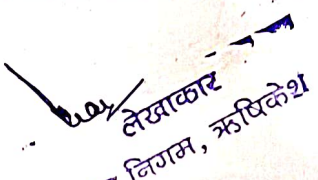 लेखाकार
निगम, ऋषिकेश